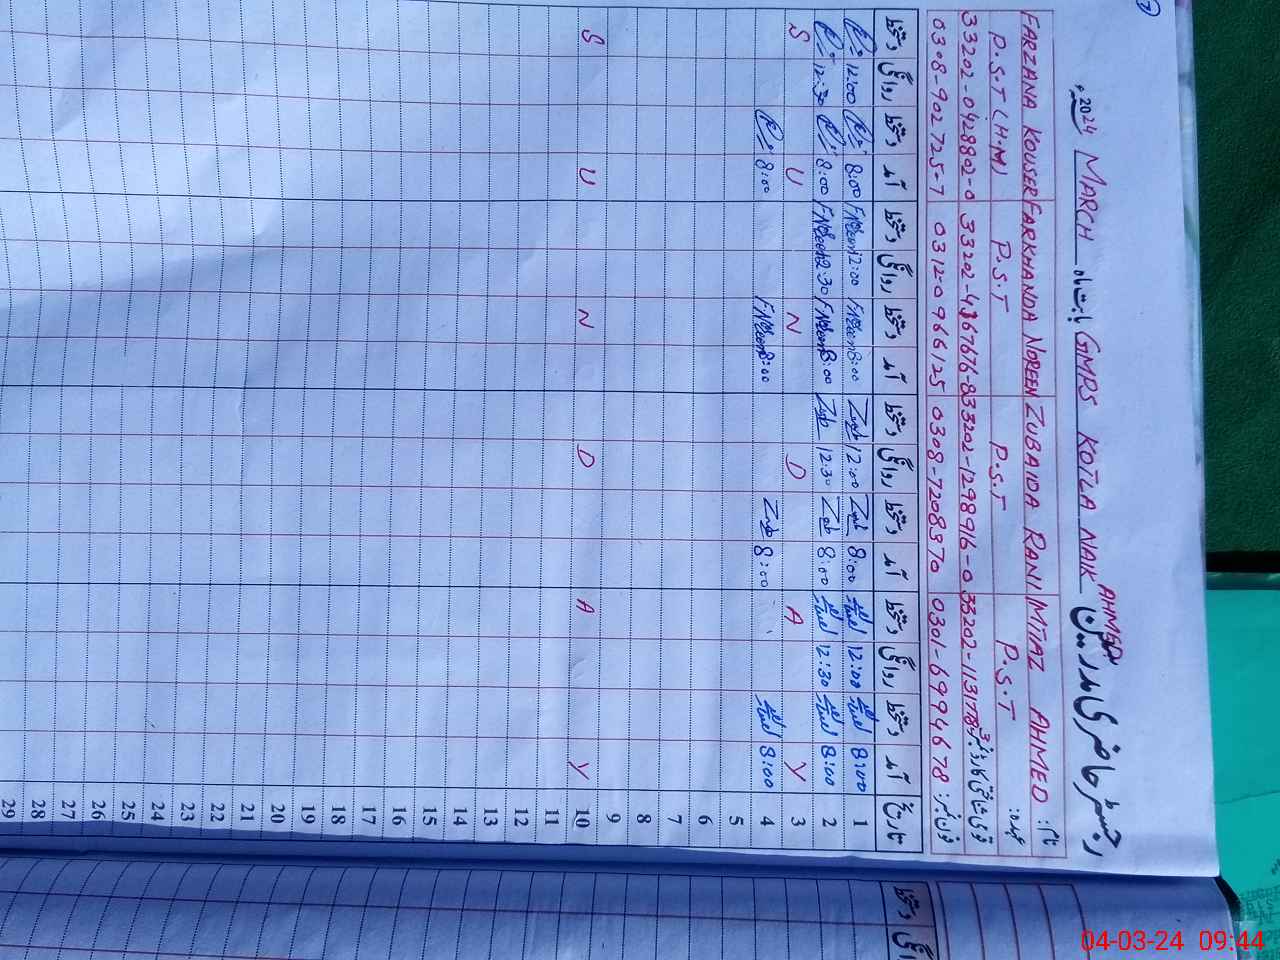 رجسٹر حاضری مدرسین GMPS KOTLA NAIK AHMED بابت ماہ MARCH 2024ء
نام: IMTIAZ AHMED ZUBAIDA RANI FARKHANDA NOREEN FARZANA KOUSER
عہدہ: P.S.T P.S.T P.S.T P.S.T (H.M)
قومی شناختی کارڈ نمبر: 33202-1298916-0 33202-0428802-0
فون نمبر: 0301-6994678 0308-7208370 0312-0966125 0308-9027257
تاریخ آمد دستخط روانگی دستخط آمد دستخط روانگی دستخط آمد دستخط روانگی دستخط آمد دستخط روانگی دستخط
1 8:00 12:00 8:00 12:00 8:00 12:00 8:00 12:00
2 8:00 12:30 8:00 12:30 8:00 12:30 8:00 12:30
3 Y A D N U S
4 8:00 8:00 8:00 8:00
5
6
7
8
9
10 Y A D N U S
11
12
13
14
15
16
17
18
19
20
21
22
23
24
25
26
27
28
29
دستخط روانگی
04-03-24 09:44